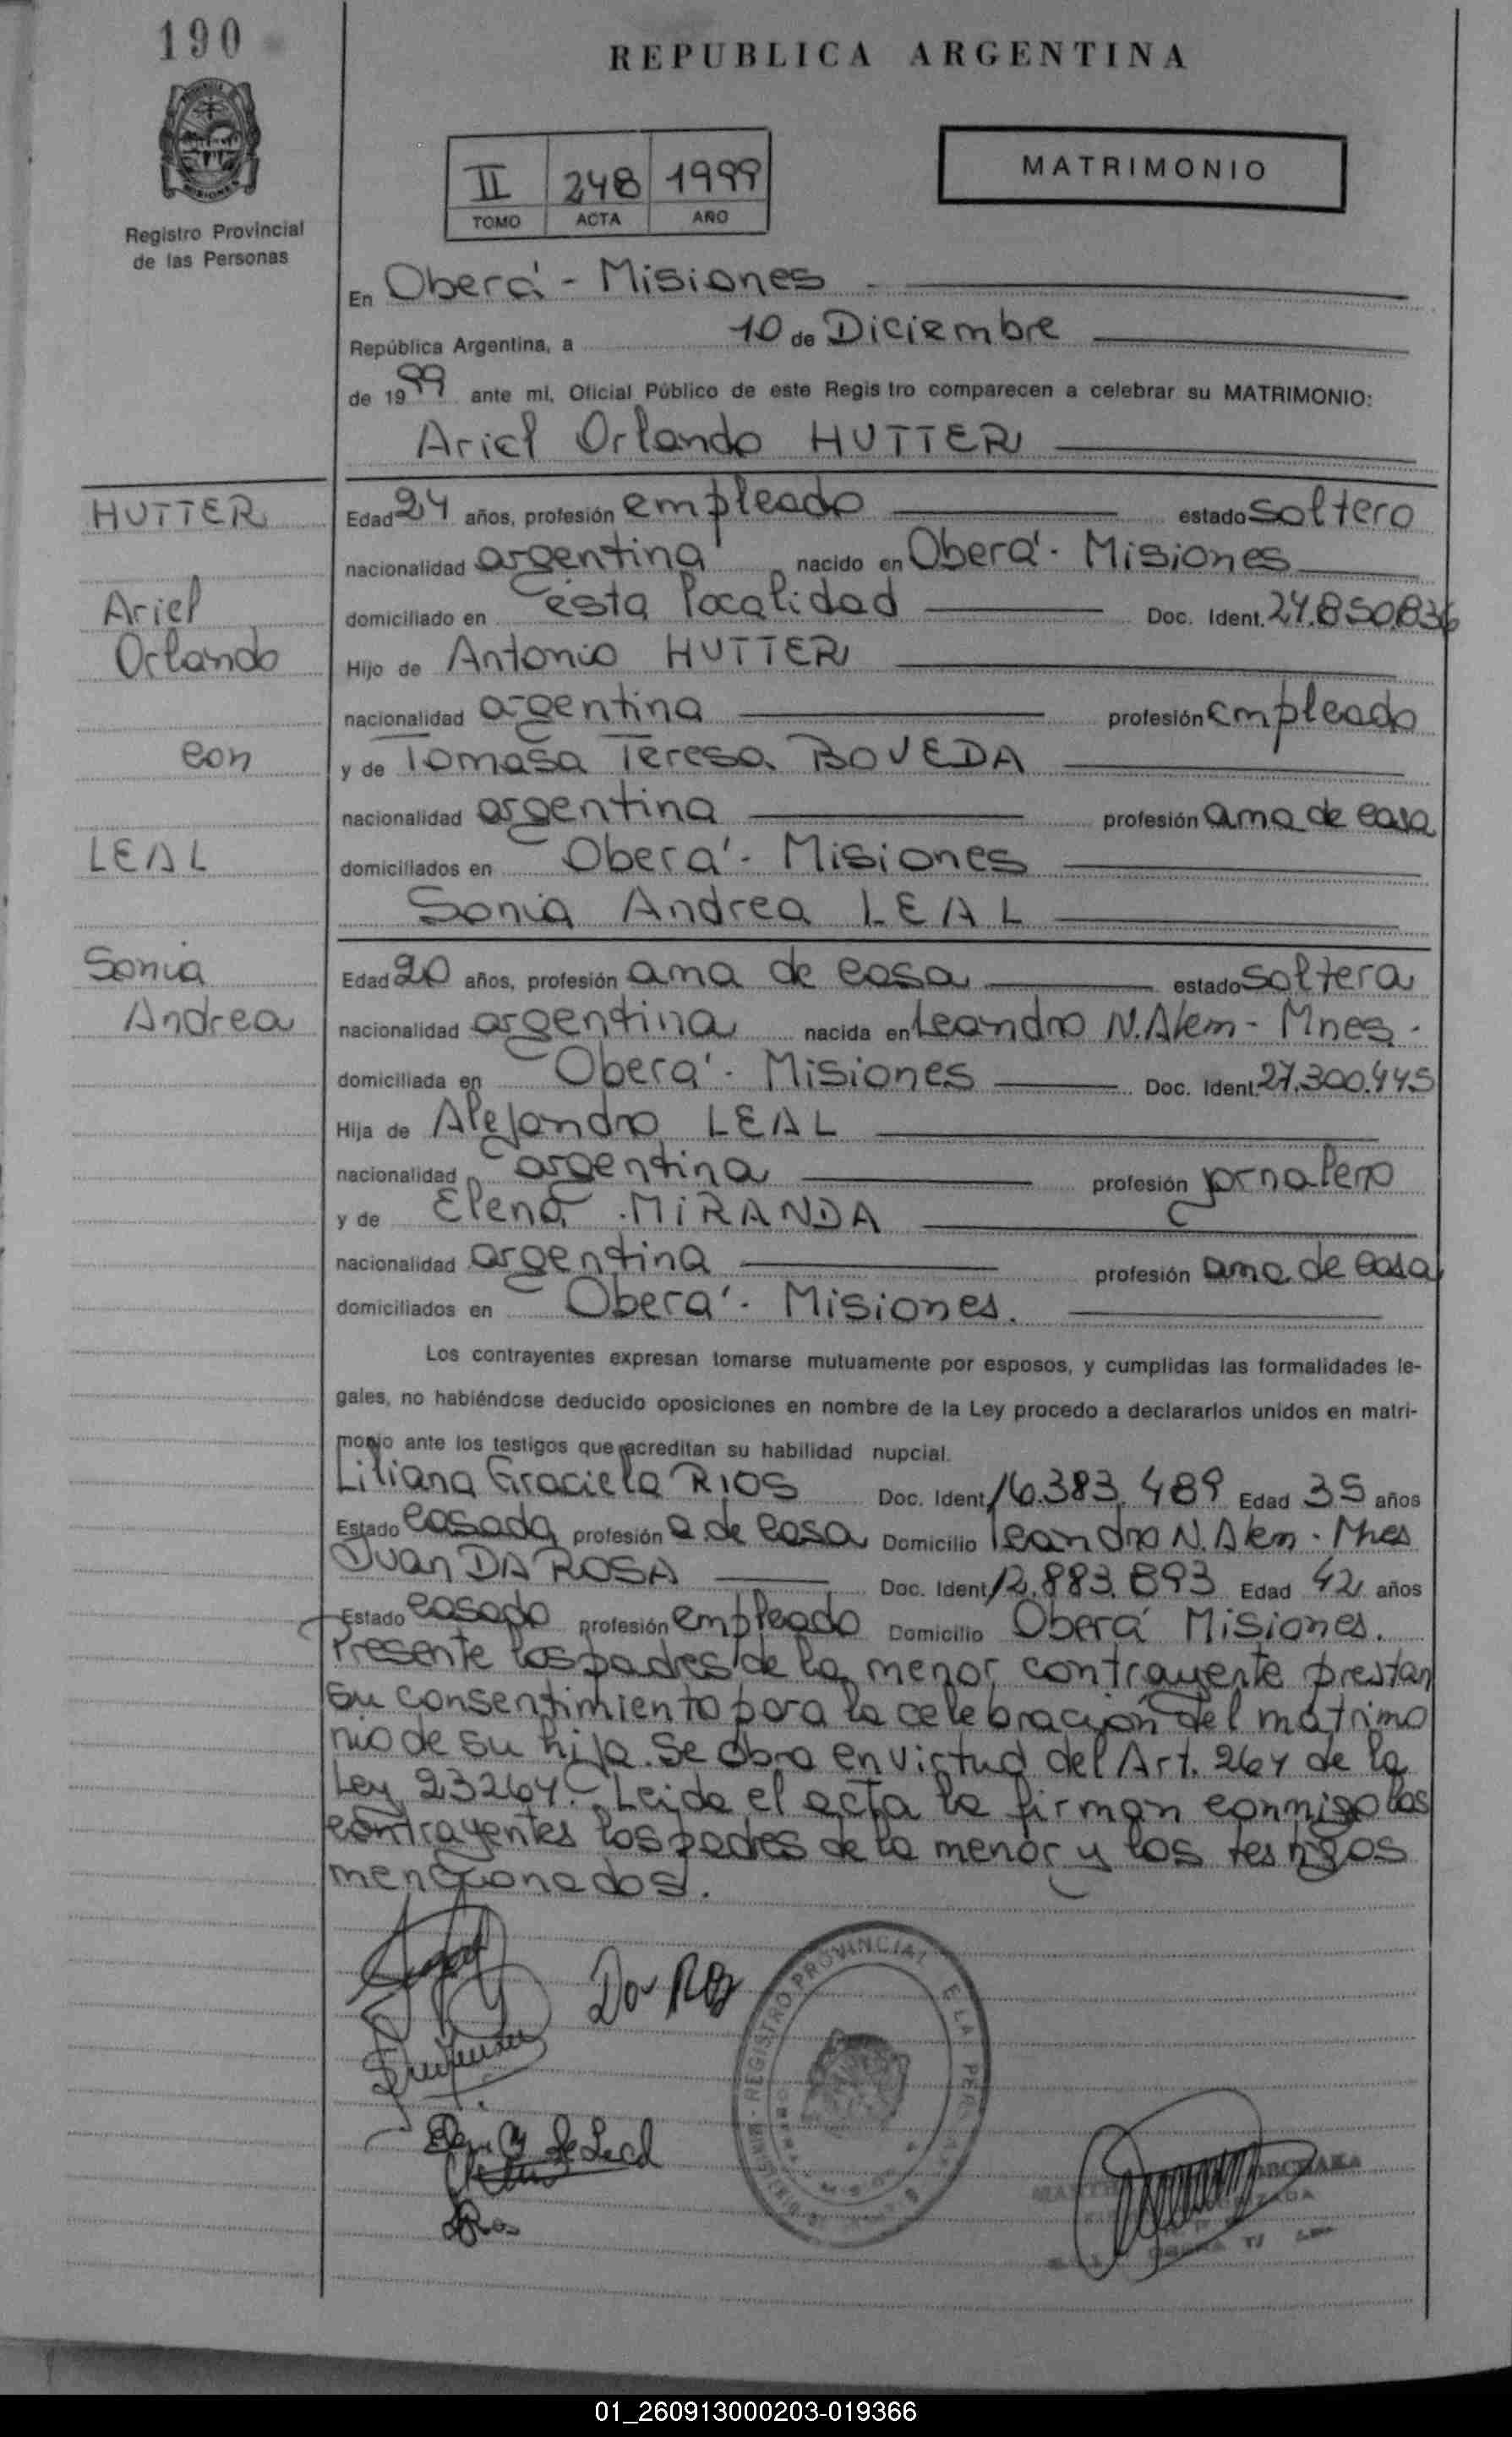 190
REPUBLICA ARGENTINA
II 248 1999
TOMO ACTA AÑO
MATRIMONIO
Registro Provincial
de las Personas
En Oberá - Misiones
República Argentina, a 10 de Diciembre
de 1999 ante mi, Oficial Público de este Regis tro comparecen a celebrar su MATRIMONIO:
Ariel Orlando HUTTER
HUTTER
Edad 24 años, profesión empleado estado soltero
nacionalidad argentina nacido en Oberá - Misiones
Ariel
domiciliado en ésta localidad Doc. Ident. 24.850.836
Orlando
Hijo de Antonio HUTTER
nacionalidad argentina profesión empleado
con
y de Tomasa Teresa BOVEDA
nacionalidad argentina profesión ama de casa
LEAL
domiciliados en Oberá - Misiones
Sonia Andrea LEAL
Sonia
Edad 20 años, profesión ama de casa estado soltera
Andrea
nacionalidad argentina nacida en Leandro N. Alem - Mnes.
domiciliada en Oberá - Misiones Doc. Ident. 27.300.445
Hija de Alejandro LEAL
nacionalidad argentina profesión jornalero
y de Elena MIRANDA
nacionalidad argentina profesión ama de casa
domiciliados en Oberá - Misiones.
Los contrayentes expresan tomarse mutuamente por esposos, y cumplidas las formalidades le-
gales, no habiéndose deducido oposiciones en nombre de la Ley procedo a declararlos unidos en matri-
monio ante los testigos que acreditan su habilidad nupcial.
Liliana Graciela RIOS Doc. Ident. 16.383.489 Edad 35 años
Estado casada profesión a. de casa Domicilio Leandro N. Alem - Mnes
Juan DA ROSA Doc. Ident. 12.883.893 Edad 42 años
Estado casado profesión empleado Domicilio Oberá Misiones.
Presente los padres de la menor contrayente prestan
su consentimiento para la celebración del matrimo
nio de su hija. Se obra en virtud del Art. 264 de la
Ley 23264.- Leida el acta la firman conmigo los
contrayentes los padres de la menor y los testigos
mencionados.
REGISTRO PROVINCIAL
01_260913000203-019366